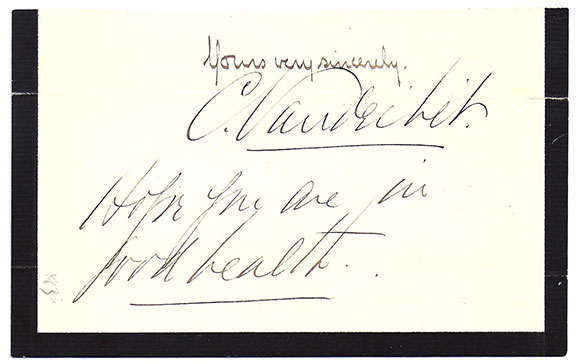 Yours very sincerely.
C. Vanderbilt.
Hope you are in
good health.